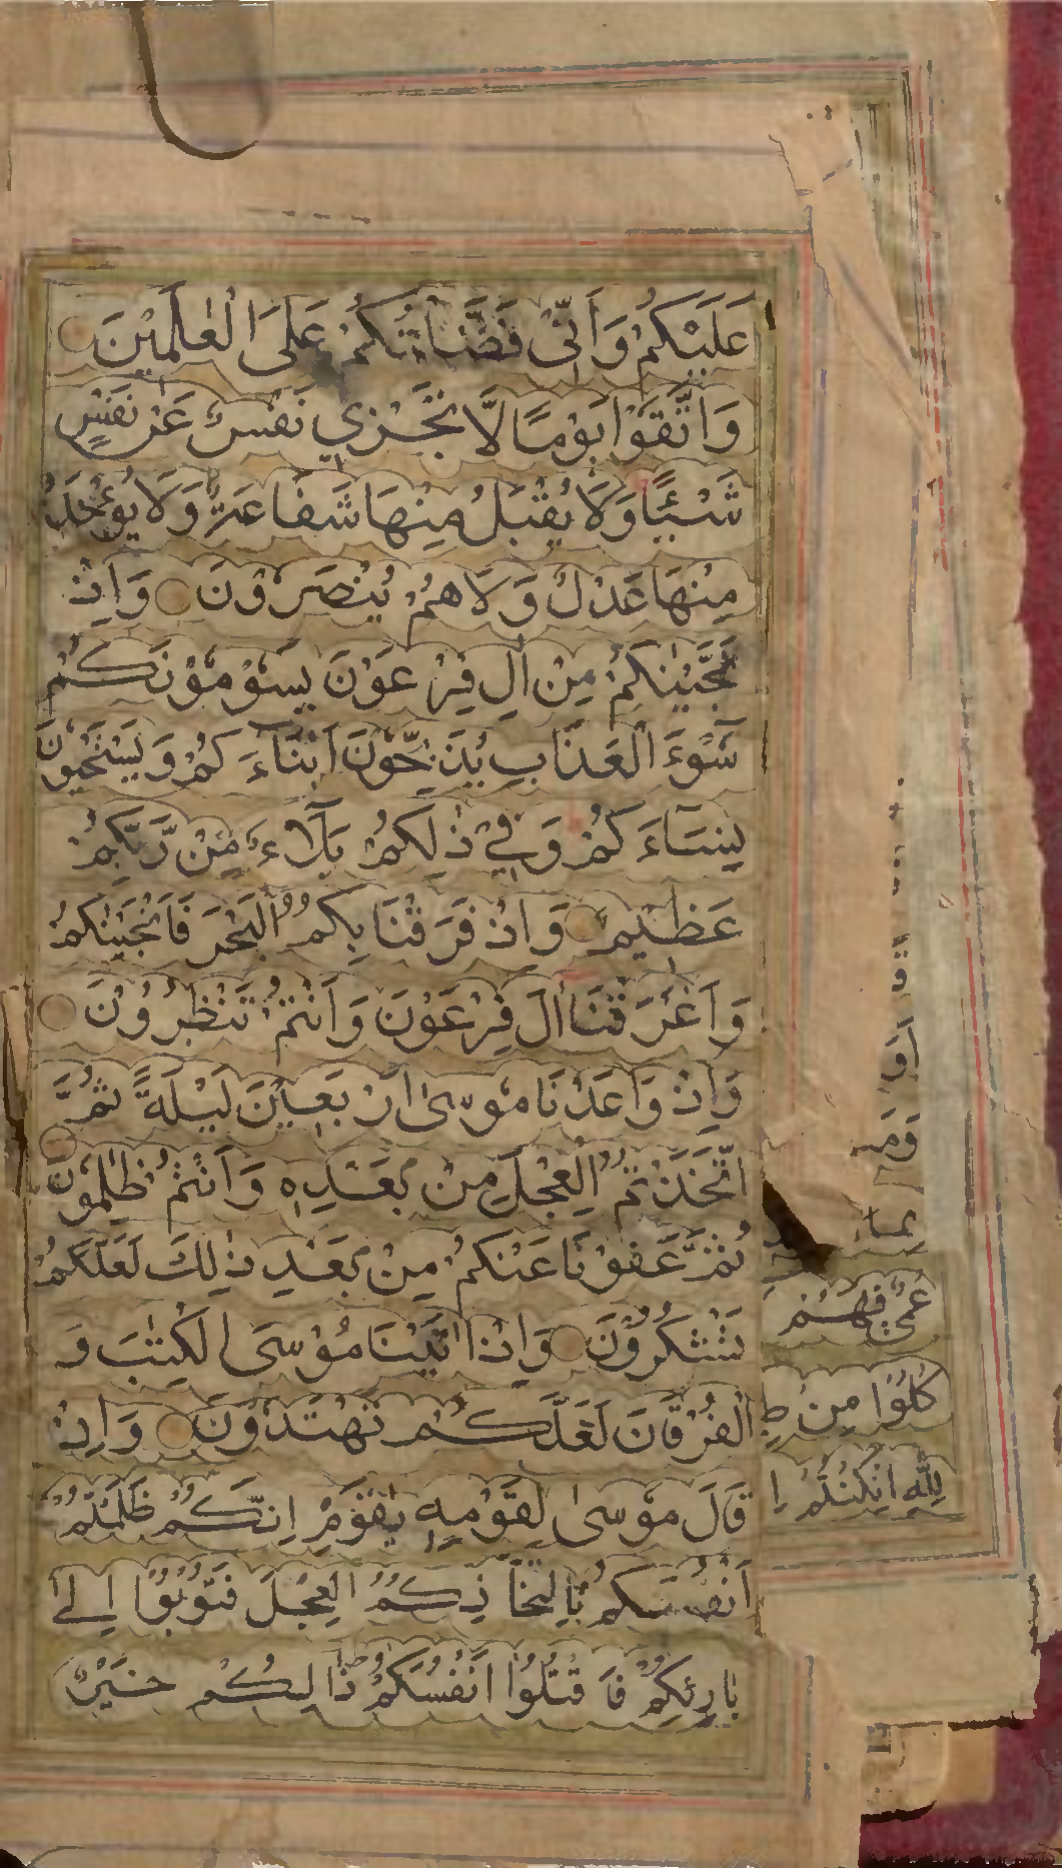 عَلَيْكُمْ وَاَنِّيْ فَضَّلْتُكُمْ عَلَى الْعٰلَمِيْنَ
وَاتَّقُوْا يَوْمًا لَّا تَجْزِيْ نَفْسٌ عَنْ نَفْسٍ
شَيْئًا وَلَا يُقْبَلُ مِنْهَا شَفَاعَةٌ وَلَا يُؤْخَذُ
مِنْهَا عَدْلٌ وَلَا هُمْ يُنْصَرُوْنَ وَاِذْ
نَجَّيْنٰكُمْ مِنْ اٰلِ فِرْعَوْنَ يَسُوْمُوْنَكُمْ
سُوْٓءَ الْعَذَابِ يُذَبِّحُوْنَ اَبْنَآءَكُمْ وَيَسْتَحْيُوْنَ
نِسَآءَكُمْ وَفِيْ ذٰلِكُمْ بَلَآءٌ مِنْ رَّبِّكُمْ
عَظِيْمٌ وَاِذْ فَرَقْنَا بِكُمُ الْبَحْرَ فَاَنْجَيْنٰكُمْ
وَاَغْرَقْنَا اٰلَ فِرْعَوْنَ وَاَنْتُمْ تَنْظُرُوْنَ
وَاِذْ وَاعَدْنَا مُوْسٰى اَرْبَعِيْنَ لَيْلَةً ثُمَّ
اتَّخَذْتُمُ الْعِجْلَ مِنْ بَعْدِهٖ وَاَنْتُمْ ظٰلِمُوْنَ
ثُمَّ عَفَوْنَا عَنْكُمْ مِنْ بَعْدِ ذٰلِكَ لَعَلَّكُمْ
تَشْكُرُوْنَ وَاِذْ اٰتَيْنَا مُوْسَى الْكِتٰبَ وَ
الْفُرْقَانَ لَعَلَّكُمْ تَهْتَدُوْنَ وَاِذْ
قَالَ مُوْسٰى لِقَوْمِهٖ يٰقَوْمِ اِنَّكُمْ ظَلَمْتُمْ
اَنْفُسَكُمْ بِاتِّخَاذِكُمُ الْعِجْلَ فَتُوْبُوْا اِلٰى
بَارِئِكُمْ فَاقْتُلُوْا اَنْفُسَكُمْ ذَالِكُمْ خَيْرٌ
عُمْيٌ فَهُمْ
كُلُوْا مِنْ طِ
لِلّٰهِ اِنْ كُنْتُمْ اِ